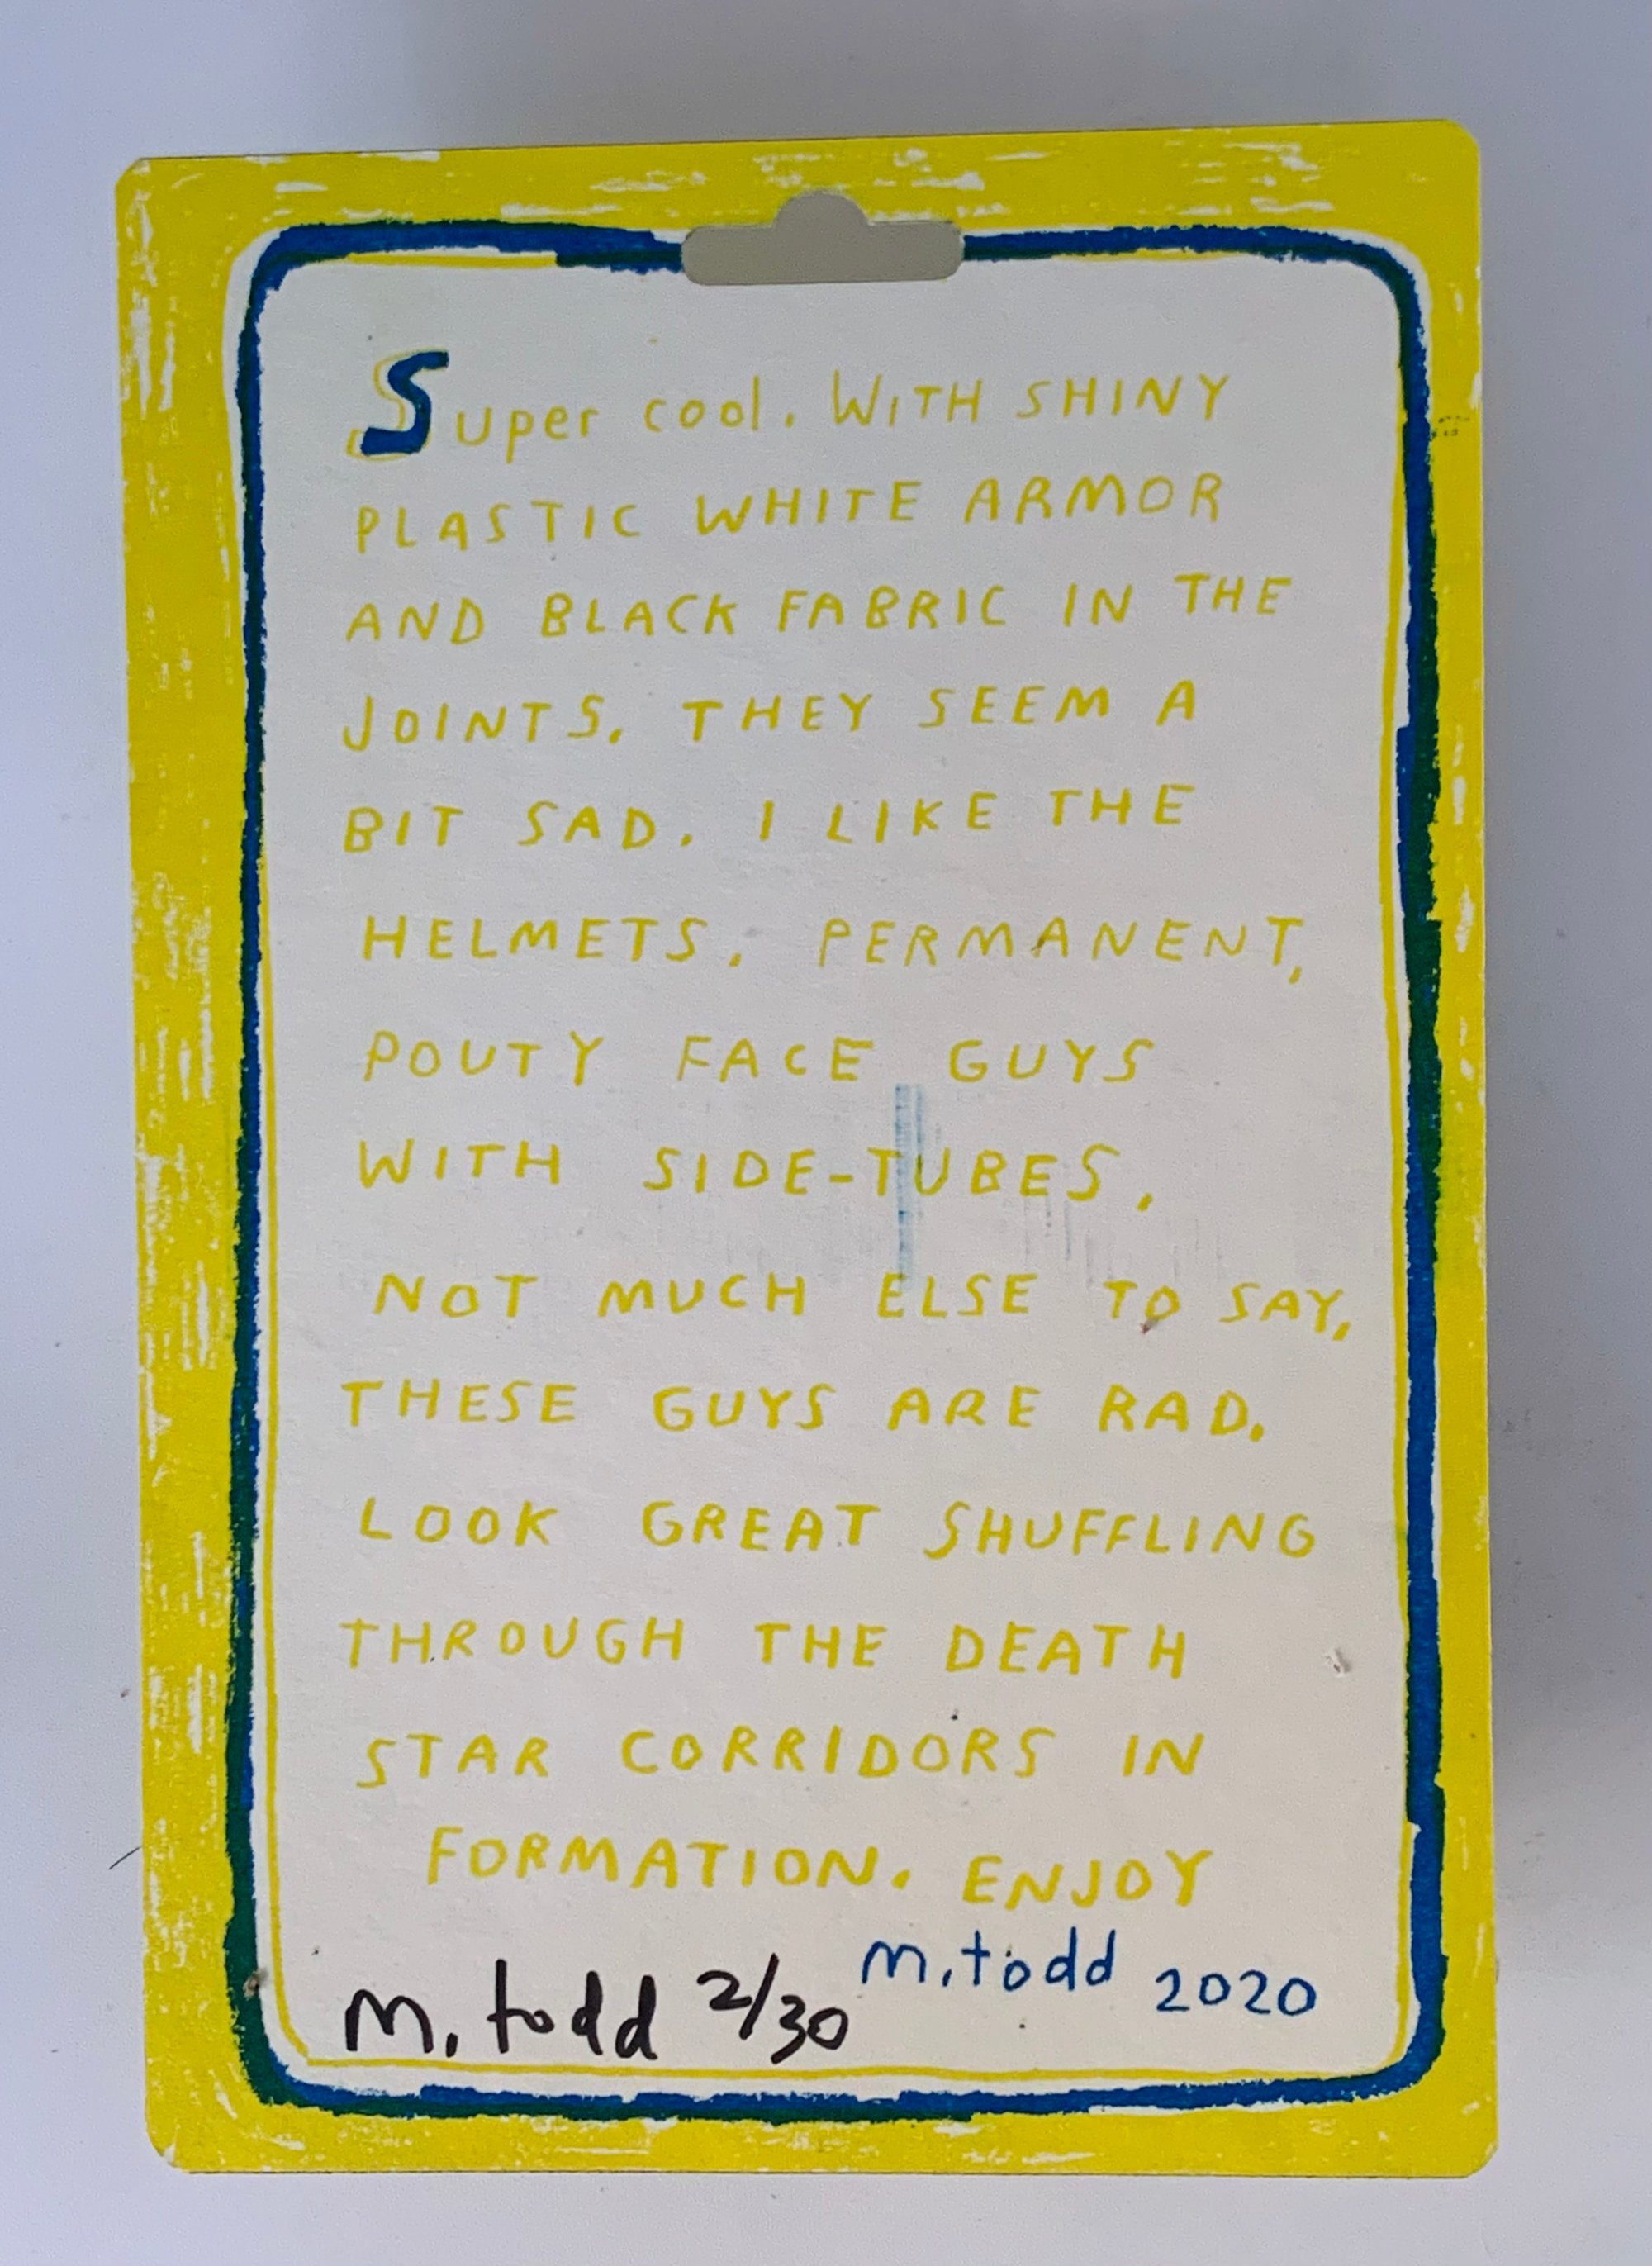 Super cool. WITH SHINY
PLASTIC WHITE ARMOR
AND BLACK FABRIC IN THE
JOINTS. THEY SEEM A
BIT SAD. I LIKE THE
HELMETS. PERMANENT,
POUTY FACE GUYS
WITH SIDE-TUBES.
NOT MUCH ELSE TO SAY,
THESE GUYS ARE RAD.
LOOK GREAT SHUFFLING
THROUGH THE DEATH
STAR CORRIDORS IN
FORMATION. ENJOY
m.todd 2020
m. todd 2/30